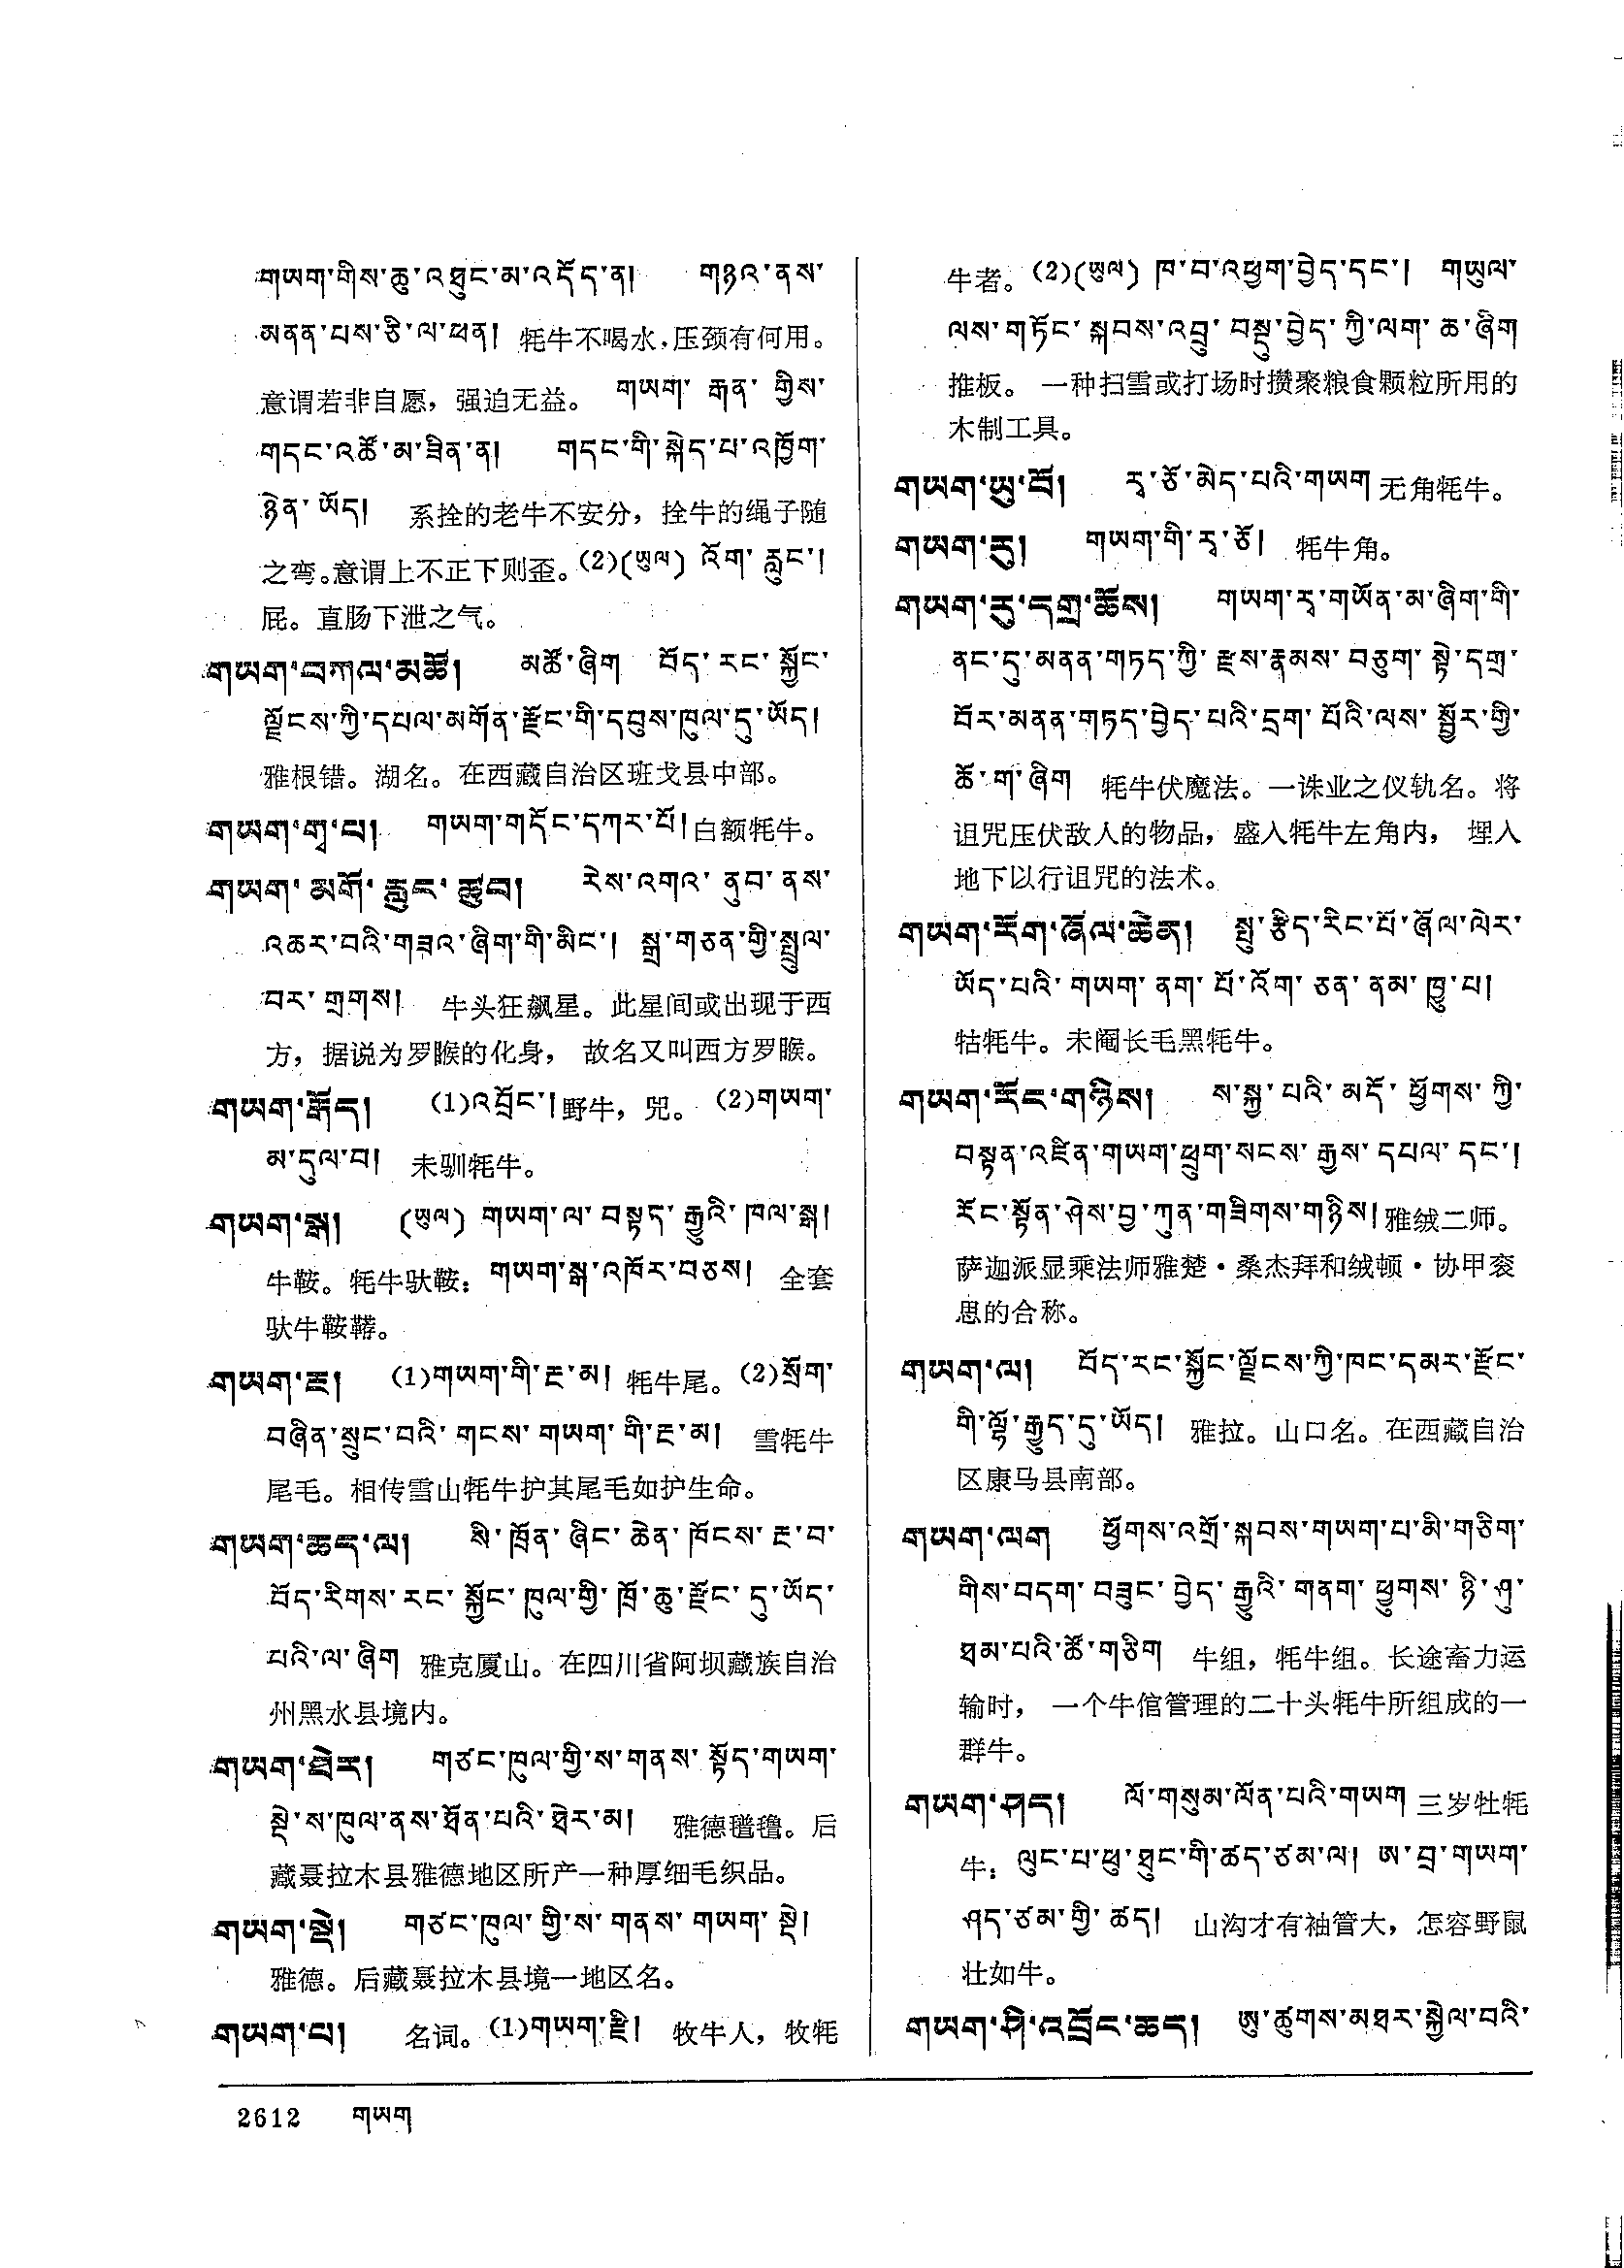 གཡག་གིས་ཆུ་འཐུང་མ་འདོད་ན། གཉའ་ནས་
མནན་པས་ཅི་ལ་ཕན། 牦牛不喝水,压颈有何用。
意谓若非自愿，强迫无益。 གཡག་ རྒན་ གྱིས་
གདང་འཚོ་མ་ཟིན་ན། གདང་གི་སྐེད་པ་འཁྱོག་
ཉེན་ཡོད། 系拴的老牛不安分，拴牛的绳子随
之弯。意谓上不正下则歪。(2)(ཡུལ) འོག་ རླུང་།
屁。直肠下泄之气。
གཡག་བཀལ་མཚོ། མཚོ་ཞིག བོད་ རང་ སྐྱོང་
ལྗོངས་ཀྱི་དཔལ་མགོན་རྫོང་གི་དབུས་ཁུལ་དུ་ཡོད།
雅根错。湖名。在西藏自治区班戈县中部。
གཡག་གྭ་པ། གཡག་གདོང་དཀར་པོ། 白额牦牛。
གཡག་ མགོ་ རླུང་ ཚུབ། རེས་འགའ་ ནུབ་ ནས་
འཆར་བའི་གཟའ་ཞིག་གི་མིང་། སྒྲ་གཅན་གྱི་སྤྲུལ་
བར་ གྲགས། 牛头狂飙星。此星间或出现于西
方，据说为罗睺的化身， 故名又叫西方罗睺。
གཡག་རྒོད། (1)འབྲོང་། 野牛，兕。 (2)གཡག་
མ་དུལ་བ། 未驯牦牛。
གཡག་སྒ། (ཡུལ) གཡག་ལ་ བསྟད་ རྒྱུའི་ ཁལ་སྒ།
牛鞍。牦牛驮鞍： གཡག་སྒ་འཁོར་བཅས། 全套
驮牛鞍鞯。
གཡག་རྔ། (1)གཡག་གི་རྔ་མ། 牦牛尾。(2)སྲོག་
བཞིན་སྲུང་བའི་ གངས་ གཡག་ གི་རྔ་མ། 雪牦牛
尾毛。相传雪山牦牛护其尾毛如护生命。
གཡག་ཆད་ལ། སི་ ཁྲོན་ ཞིང་ ཆེན་ ཁོངས་ རྔ་བ་
བོད་རིགས་ རང་ སྐྱོང་ ཁུལ་གྱི་ ཁྲོ་ཆུ་རྫོང་ དུ་ཡོད་
པའི་ལ་ཞིག 雅克厦山。在四川省阿坝藏族自治
州黑水县境内。
གཡག་ཐེར། གཙང་ཁུལ་གྱི་ས་གནས་ སྟོད་གཡག་
སྡེ་ས་ཁུལ་ནས་ཐོན་པའི་ཐེར་མ། 雅德氆氇。后
藏聂拉木县雅德地区所产一种厚细毛织品。
གཡག་སྡེ། གཙང་ཁུལ་ གྱི་ས་ གནས་ གཡག་ སྡེ།
雅德。后藏聂拉木县境一地区名。
གཡག་པ། 名词。(1)གཡག་རྫི། 牧牛人，牧牦
牛者。(2)(ཡུལ) ཁ་བ་འཕྱག་བྱེད་དང་། གཡུལ་
ལས་གཏོང་ སྐབས་འབྲུ་ བསྡུ་བྱེད་ཀྱི་ལག་ ཆ་ཞིག
推板。 一种扫雪或打场时攒聚粮食颗粒所用的
木制工具。
གཡག་ཡུ་བོ། རྭ་ཅོ་མེད་པའི་གཡག 无角牦牛。
གཡག་རུ། གཡག་གི་རྭ་ཅོ། 牦牛角。
གཡག་རུ་དགྲ་ཆོས། གཡག་རྭ་གཡོན་མ་ཞིག་གི་
ནང་དུ་མནན་གཏད་ཀྱི་ རྫས་རྣམས་ བཅུག་ སྟེ་དགྲ་
བོར་མནན་གཏད་བྱེད་པའི་དྲག་ པོའི་ལས་ སྦྱོར་གྱི་
ཆོ་ག་ཞིག 牦牛伏魔法。一诛业之仪轨名。将
诅咒压伏敌人的物品，盛入牦牛左角内， 埋入
地下以行诅咒的法术。
གཡག་རོག་ཞོལ་ཆེན། སྤུ་རྩིད་རིང་པོ་ཞོལ་ལེར་
ཡོད་པའི་ གཡག་ ནག་ པོ་འོག་ ཅན་ ནམ་ ཁྱུ་པ།
牯牦牛。未阉长毛黑牦牛。
གཡག་རོང་གཉིས། ས་སྐྱ་ པའི་ མདོ་ ཕྱོགས་ ཀྱི་
བསྟན་འཛིན་གཡག་ཕྲུག་སངས་ རྒྱས་ དཔལ་ དང་།
རོང་སྟོན་ཤེས་བྱ་ཀུན་གཟིགས་གཉིས། 雅绒二师。
萨迦派显乘法师雅楚·桑杰拜和绒顿·协甲衮
思的合称。
གཡག་ལ། བོད་རང་སྐྱོང་ལྗོངས་ཀྱི་ཁང་དམར་རྫོང་
གི་ལྷོ་རྒྱུད་དུ་ཡོད། 雅拉。山口名。在西藏自治
区康马县南部。
གཡག་ལག ཕྱོགས་འགྲོ་སྐབས་གཡག་པ་མི་གཅིག་
གིས་བདག་ བཟུང་ བྱེད་ རྒྱུའི་ གནག་ ཕྱུགས་ ཉི་ཤུ་
ཐམ་པའི་ཚོ་གཅིག 牛组，牦牛组。长途畜力运
输时， 一个牛倌管理的二十头牦牛所组成的一
群牛。
གཡག་ཤད། ལོ་གསུམ་ལོན་པའི་གཡག 三岁牡牦
牛： ལུང་པ་ཕུ་ཐུང་གི་ཚད་ཙམ་ལ། ཨ་བྲ་གཡག་
ཤད་ཙམ་གྱི་ ཚད། 山沟才有袖管大，怎容野鼠
壮如牛。
གཡག་ཤི་འབྲོང་ཆད། ཨུ་ཚུགས་མཐར་སྐྱེལ་བའི་
2612 གཡག